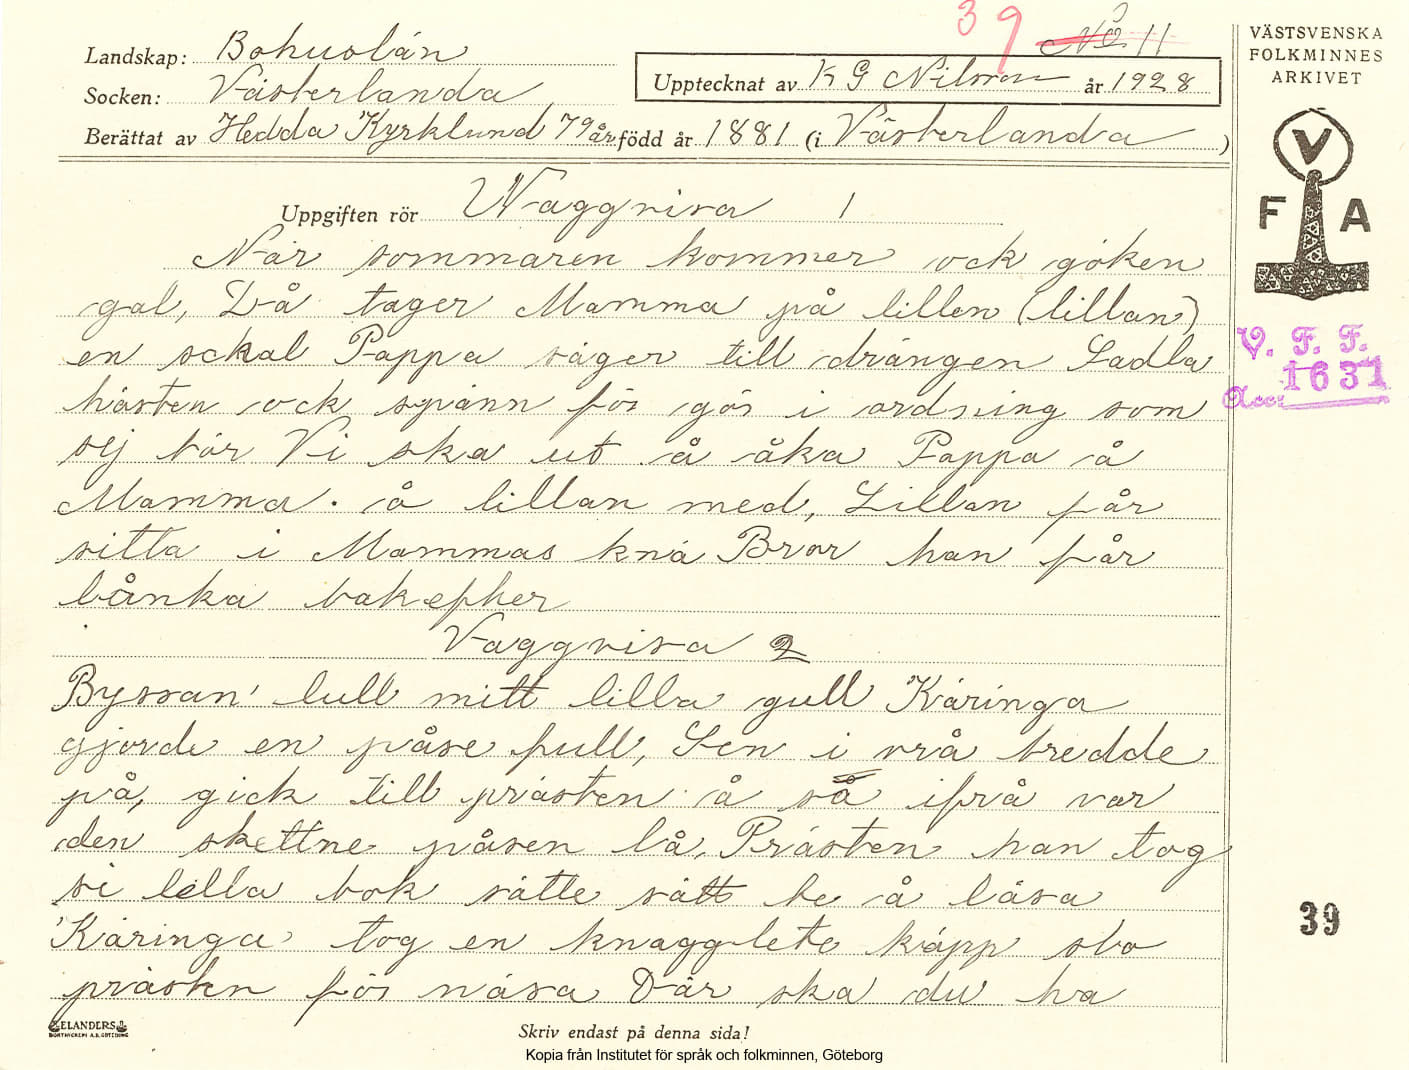 39 No 11
VÄSTSVENSKA
FOLKMINNES
ARKIVET
Landskap: Bohuslän
Upptecknat av K G Nilsson år 1928
Socken: Västerlanda
Berättat av Hedda Kyrklund 79 år född år 1881 (i Västerlanda)
V
F A
Uppgiften rör Waggvisa 1
När sommaren kommer ock göken
gal, Då tager Mamma på lillen (lillan)
en sckal Pappa säger till drängen Sadla
hästen ock spänn för gör i ordning som
sej bör Vi ska ut å åka Pappa å
Mamma. å lillan med, Lillan får
sitta i Mammas knä Bror han får
bånka bakefter
V. F. F.
Acc: 1631
Vaggvisa 2
Byssan lull mitt lilla gull Käringa
gjorde en påse full, Sen i vrå bredde
på, gick till prästen å sa ifrå var
den skettne påsen lå, Prästen han tog
si lella bok sätte sätt be å läsa
Käringa tog en knagglete käpp slo
prästen för näsa Där ska du ha
39
ELANDERS
BOKTRYCKERI A.B. GÖTEBORG
Skriv endast på denna sida!
Kopia från Institutet för språk och folkminnen, Göteborg